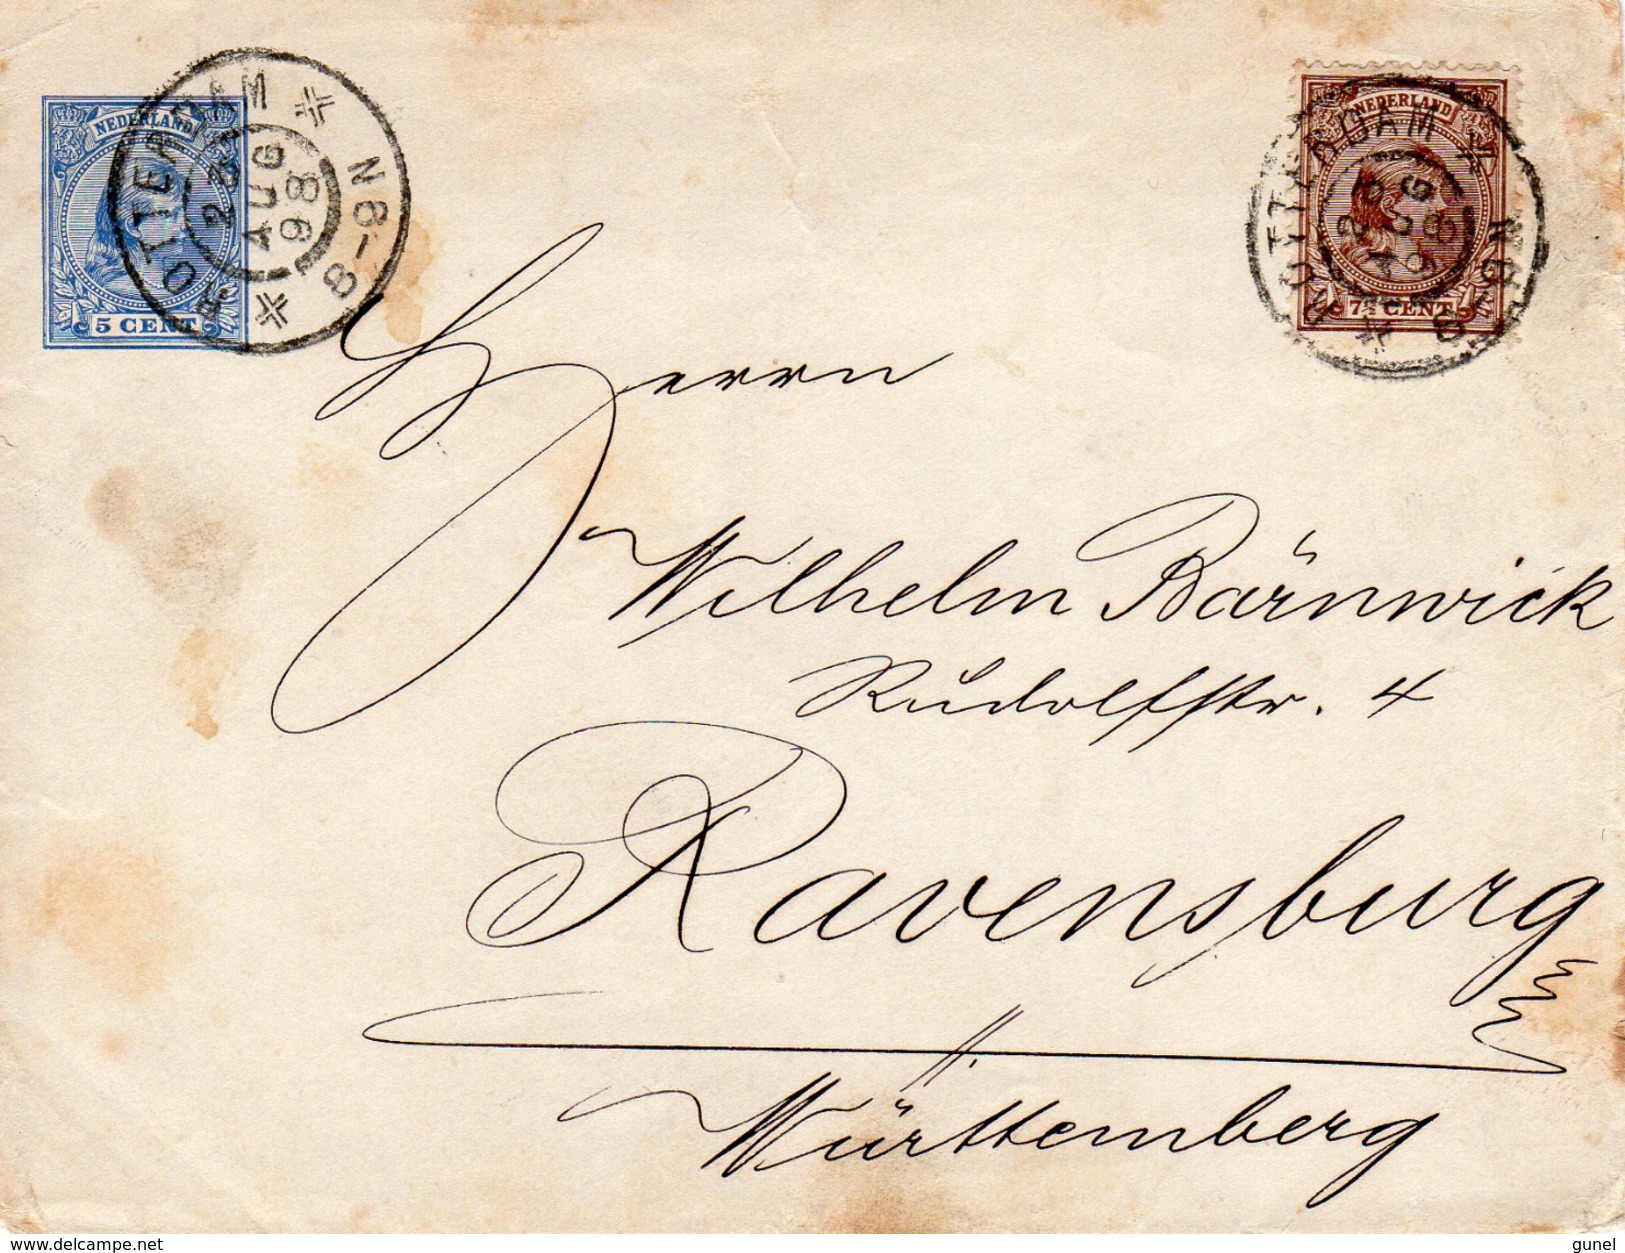 NEDERLAND
5 CENT
ROTTERDAM
AUG
98
8-9N
NEDERLAND
7½ CENT
ROTTERDAM
98
Herrn
Wilhelm Bärnwick
Rudolfstr. 4
Ravensburg
Württemberg
www.delcampe.net
gunel